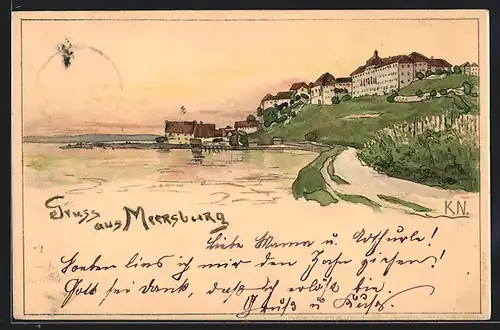 Gruss
aus Meersburg
K N.
Liebe Mama u.
Soeben liess ich mir den Zahn ziehen!
Gott sei Dank, daß ich erlöst bin.
Gruß u Kuss.